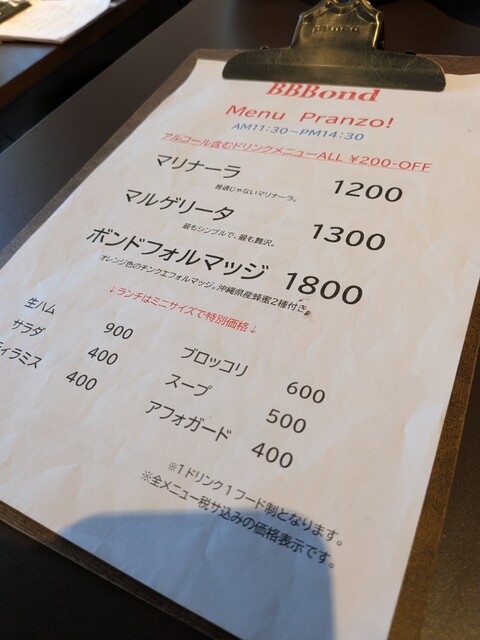 BBBond
Menu Pranzo!
AM11:30~PM14:30
アルコール含むドリンクメニューALL ¥200-OFF
マリナーラ 1200
普通じゃないマリナーラ。
マルゲリータ 1300
最もシンプルで、最も贅沢。
ボンドフォルマッジ 1800
オレンジ色のチンクエフォルマッジ。沖縄県産蜂蜜2種付き。
↓ランチはミニサイズで特別価格↓
生ハム 900
サラダ 400
ティラミス 400
ブロッコリ 600
スープ 500
アフォガード 400
※1ドリンク1フード制となります。
※全メニュー税サ込みの価格表示です。